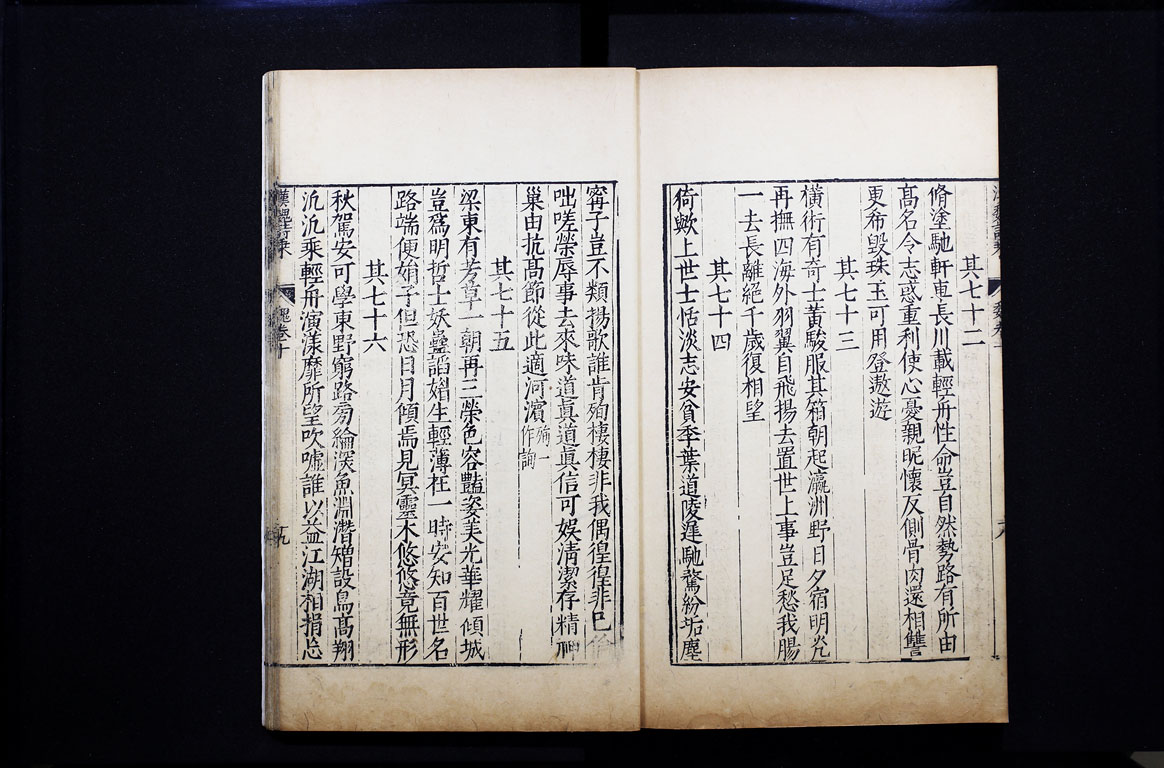 其七十二
脩塗馳軒車長川載輕舟性命豈自然勢路有所由
髙名令志惑重利使心憂親昵懷反側骨肉還相讐
更希毀珠玉可用登遨遊
其七十三
橫術有竒士黃駿服其箱朝起瀛洲野日夕宿明光
再撫四海外羽翼自飛揚去置世上事豈足愁我腸
一去長離絕千歲復相望
其七十四
猗歟上世士恬淡志安貧季葉道陵遲馳騖紛垢塵
甯子豈不類揚歌誰肯殉棲棲非我偶徨徨非己倫
咄嗟榮辱事去來味道眞道眞信可娛淸潔存精神
巢由抗髙節從此適河濵
殉一
作詢
其七十五
梁東有芳草一朝再三榮色容豔姿美光華耀傾城
豈爲明哲士妖蠱謟媚生輕薄在一時安知百世名
路端便娟子但恐日月傾焉見冥靈木悠悠竟無形
其七十六
秋駕安可學東野窮路旁綸深魚淵潛矰設鳥髙翔
汎汎乘輕舟演漾靡所望吹噓誰以益江湖相捐忘
漢魏詩乗
魏卷十
九